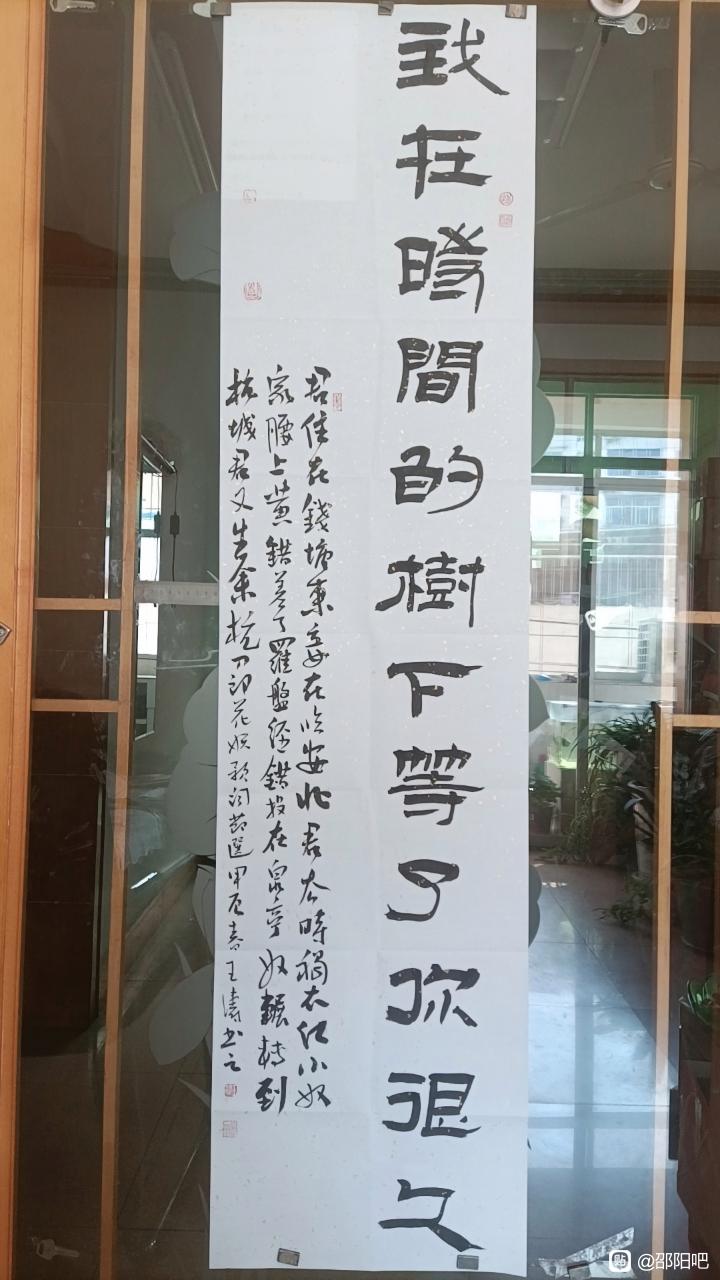 我在時間的樹下等了你很久
君住在錢塘東妾在临安北君去時褐衣红小奴
家腰上黄錯差了羅盤经錯投在泉亭奴輾轉到
杭城君又生余杭刀郎花妖歌词節選甲辰春王濤书之
貼 @邵阳吧